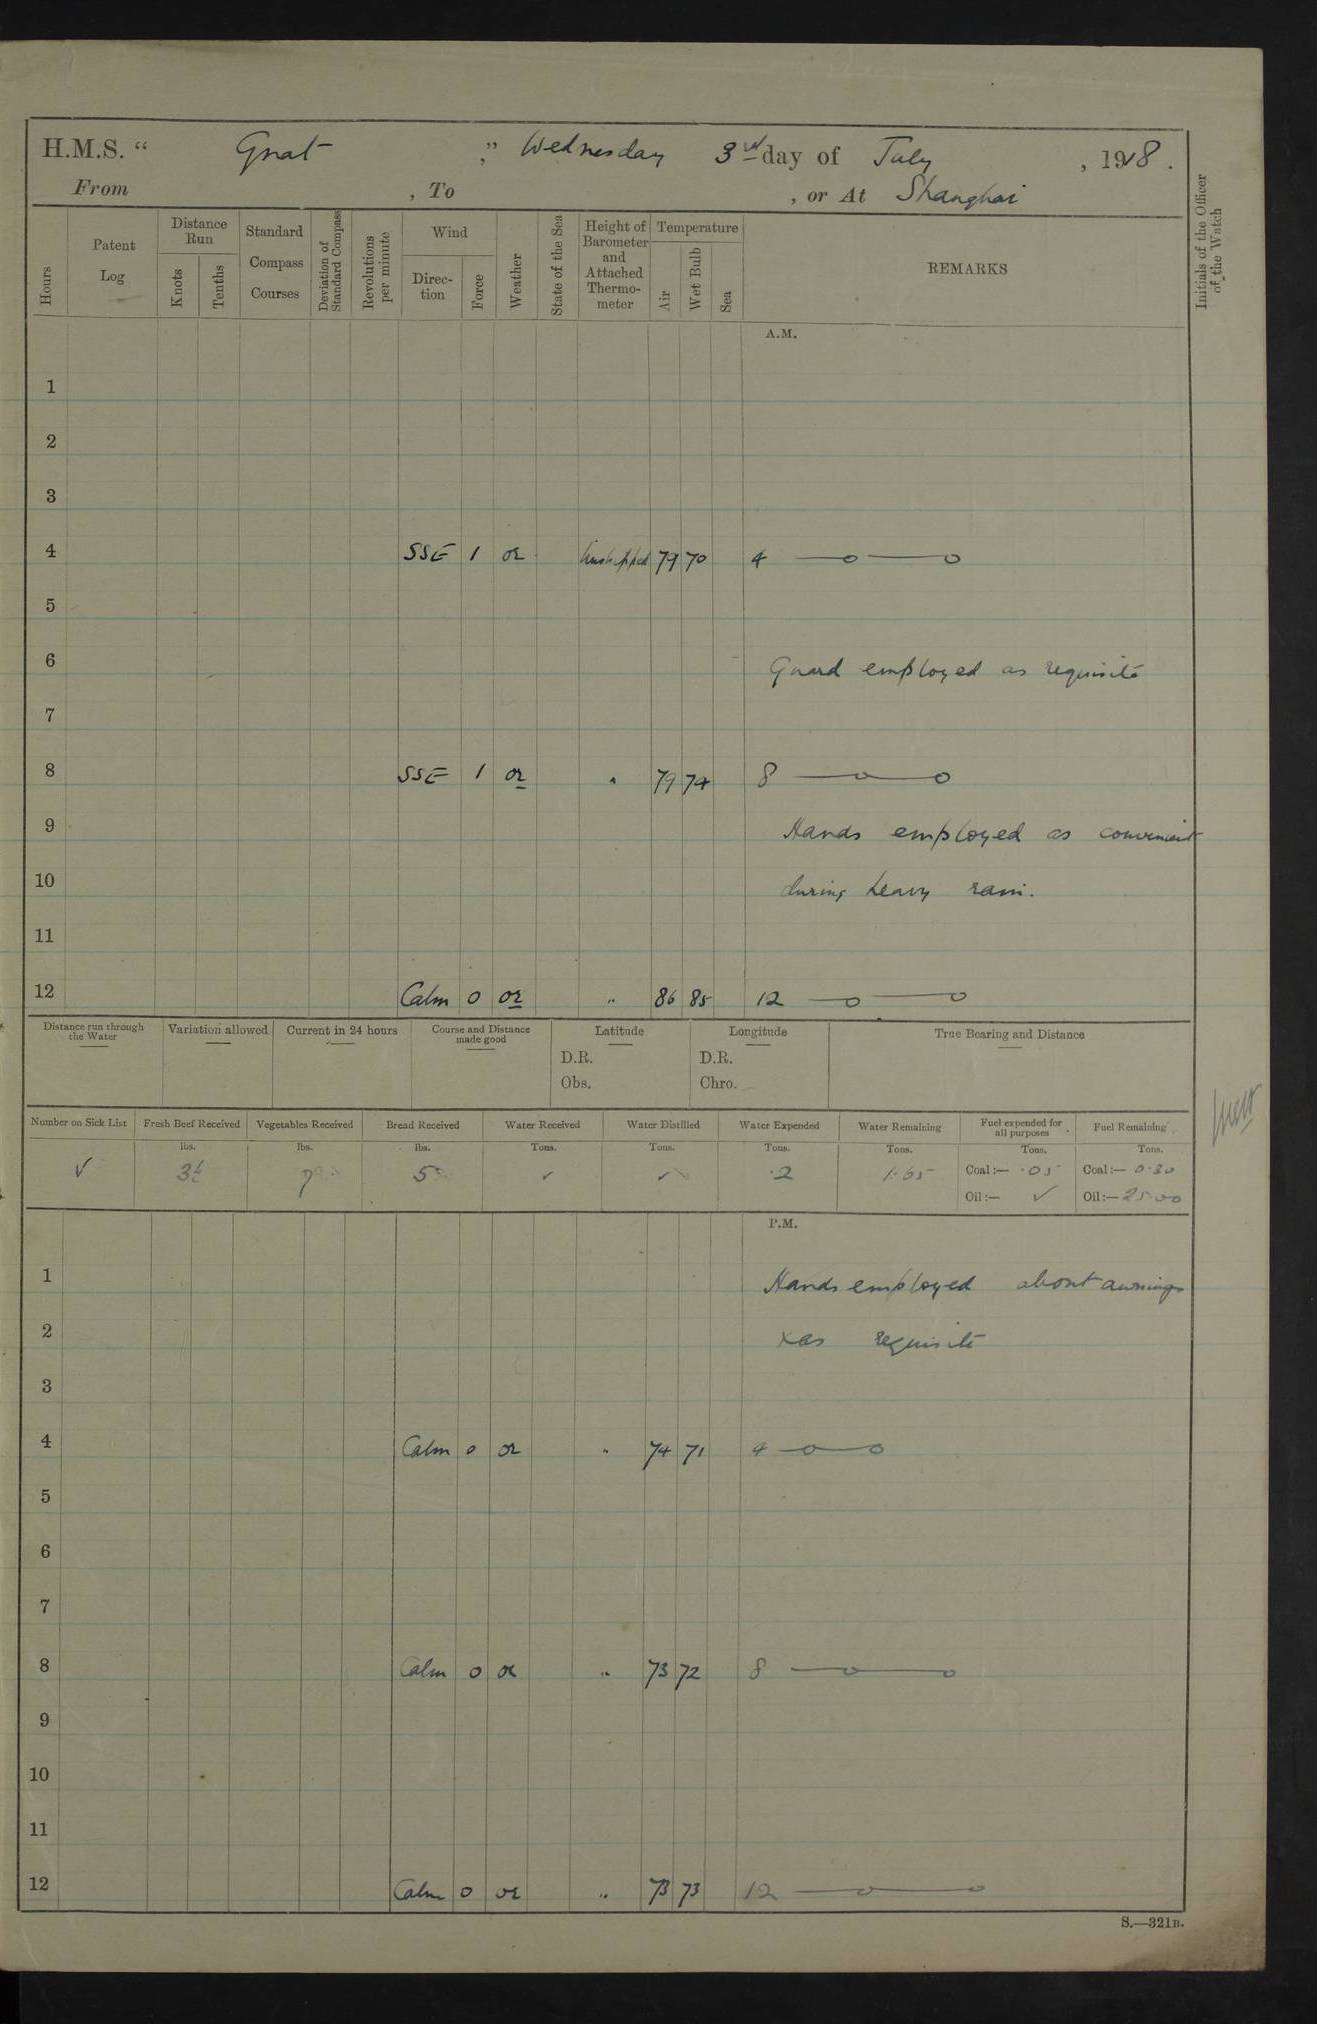 H.M.S. “ Gnat ,” Wednesday 3rd day of July , 1918.
From , To , or At Shanghai
Hours
Patent Log
Distance Run
Knots
Tenths
Standard Compass Courses
Deviation of Standard Compass
Revolutions per minute
Wind
Direction
Force
Weather
State of the Sea
Height of Barometer and Attached Thermometer
Temperature
Air
Wet Bulb
Sea
REMARKS
Initials of the Officer of the Watch
A.M.
1
2
3
4 SSE 1 or Unshipped 79 70 4
5
6 Guard employed as requisite
7
8 SSE 1 or " 79 74 8
9 Hands employed as convenient
10 during heavy rain.
11
12 Calm 0 or " 86 85 12
Distance run through the Water
Variation allowed
Current in 24 hours
Course and Distance made good
Latitude
D.R.
Obs.
Longitude
D.R.
Chro.
True Bearing and Distance
Number on Sick List
Fresh Beef Received
Vegetables Received
Bread Received
Water Received
Water Distilled
Water Expended
Water Remaining
Fuel expended for all purposes
Fuel Remaining
lbs. lbs. lbs. Tons. Tons. Tons. Tons. Tons. Tons.
✓ ✓ ✓ .2 1.65 Coal:— .05 Coal:— 0.80
Oil:— ✓ Oil:— 25.00
P.M.
1 Hands employed about awnings
2 & as requisite
3
4 Calm 0 or " 74 71 4
5
6
7
8 Calm 0 or " 73 72 8
9
10
11
12 Calm 0 or " 73 73 12
S.—321B.